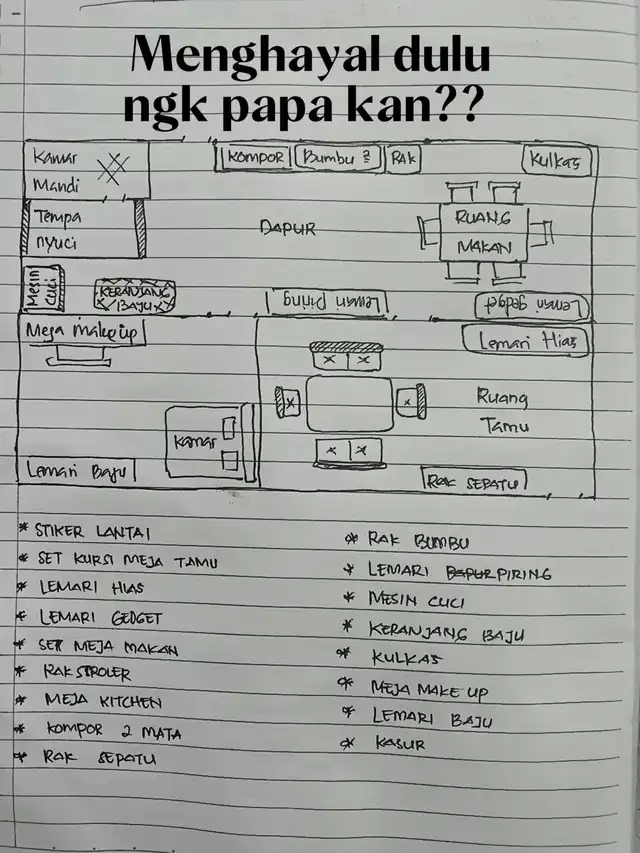 Menghayal dulu
ngk papa kan??
Kamar
Mandi
KOMPOR
Bumbu 2
RAK
Kulkas
Tempa
nyuci
DAPUR
RUANG
MAKAN
Mesin
Cuci
KERANJANG
BAJU
Lemari Piring
Lemari gedget
Meja makeup
Lemari Hias
Ruang
Tamu
Kamar
Lemari Baju
RAK SEPATU
* STIKER LANTAI
* SET KURSI MEJA TAMU
* LEMARI HIAS
* LEMARI GEDGET
* SET MEJA MAKAN
* RAK STROLER
* MEJA KITCHEN
* KOMPOR 2 MATA
* RAK SEPATU
* RAK BUMBU
* LEMARI DAPUR PIRING
* MESIN CUCI
* KERANJANG BAJU
* KULKAS
* MEJA MAKE UP
* LEMARI BAJU
* KASUR